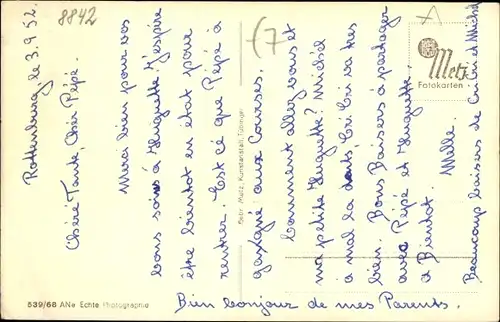 8842
Rottenburg, le 3.9.52.
Chère Tante, Cher Pépé.
Merci bien pour vos
bons soins à Huguette. J'espère
être bientot en état pour
rentrer. Est cé que Pépé à
aux Courses.
Comment allez vous et
ma petite Huguette? Michel
a mal la dents. Cri Cri va tres
bien. Bons Baisers à partager
avec Pépé et Huguette.
à Bientot. Melle.
Beaucoup baisers de Cricri et Michel
Bien bonjour de mes Parents.
(7
A
Metz
Fotokarten
Gebr. Metz, Kunstanstalt, Tübingen
539/68 ANe Echte Photographie